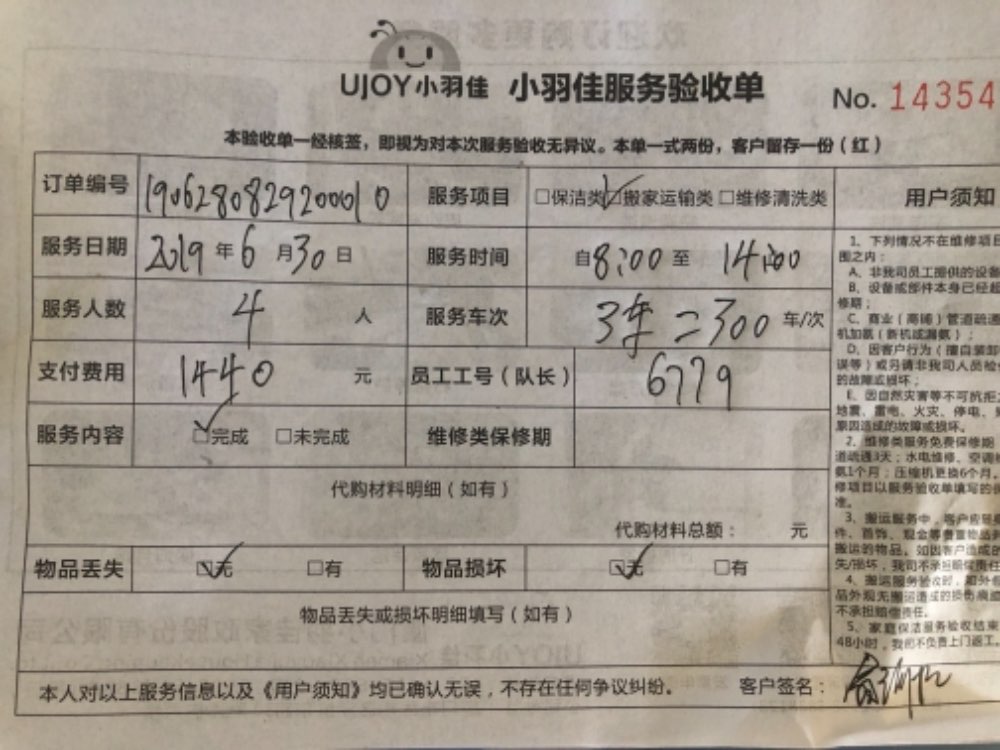 UJOY小羽佳 小羽佳服务验收单 No. 14354
本验收单一经核签，即视为对本次服务验收无异议。本单一式两份，客户留存一份（红）
订单编号 190628082920001 0 服务项目 □保洁类 ☑搬家运输类 □维修清洗类 用户须知
服务日期 2019 年 6 月 30 日 服务时间 自 8:00 至 14:00
服务人数 4 人 服务车次 3车=300 车/次
支付费用 1440 元 员工工号（队长） 6779
服务内容 ☑完成 □未完成 维修类保修期
代购材料明细（如有）
代购材料总额： 元
物品丢失 ☑无 □有 物品损坏 ☑无 □有
物品丢失或损坏明细填写（如有）
本人对以上服务信息以及《用户须知》均已确认无误，不存在任何争议纠纷。 客户签名：
1、下列情况不在维修项目
围之内：
A、非我司员工提供的设备
B、设备或部件本身已经超
修期；
C、商业（商铺）管道疏通
机加氨（新机或漏氨）；
D、因客户行为（擅自装卸
误等）或另请非我司人员检修
的故障或损坏；
E、因自然灾害等不可抗拒
地震、雷电、火灾、停电、
原因造成的故障或损坏。
2、维修类服务免费保修期
道疏通3天；水电维修、空调
氨1个月；压缩机更换6个月。
修项目以服务验收单填写的
准。
3、搬运服务中，客户应
件、首饰、现金等贵重物品
搬运的物品。如因客户造成的
失/损坏，我司不承担赔偿责任
4、搬运服务验收时，
品外观无搬运造成的损伤痕迹
不承担赔偿责任。
5、家庭保洁服务验收结束
48小时，我司不负责上门返工。